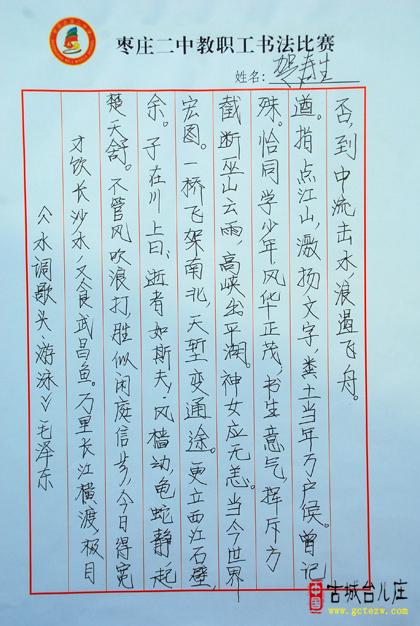 枣庄二中教职工书法比赛
姓名:
《水调歌头·游泳》毛泽东
才饮长沙水,又食武昌鱼。万里长江横渡,极目
楚天舒。不管风吹浪打,胜似闲庭信步,今日得宽
余。子在川上曰:逝者如斯夫,风樯动,龟蛇静,起
宏图。一桥飞架南北,天堑变通途。更立西江石壁,
截断巫山云雨,高峡出平湖。神女应无恙。当今世界
殊。恰同学少年,风华正茂,书生意气,挥斥方
遒。指点江山,激扬文字,粪土当年万户候。曾记
否,到中流击水,浪遏飞舟。
中国 古城台儿庄
www.gctezw.com